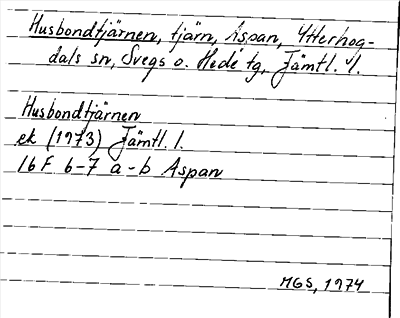 Husbondtjärnen, tjärn, Aspan, Ytterhog-
dals sn, Svegs o. Hede tg, Jämtl. l.
Husbondtjärnen
ek (1973) Jämtl. l.
16F 6-7 a-b Aspan
MGS, 1974